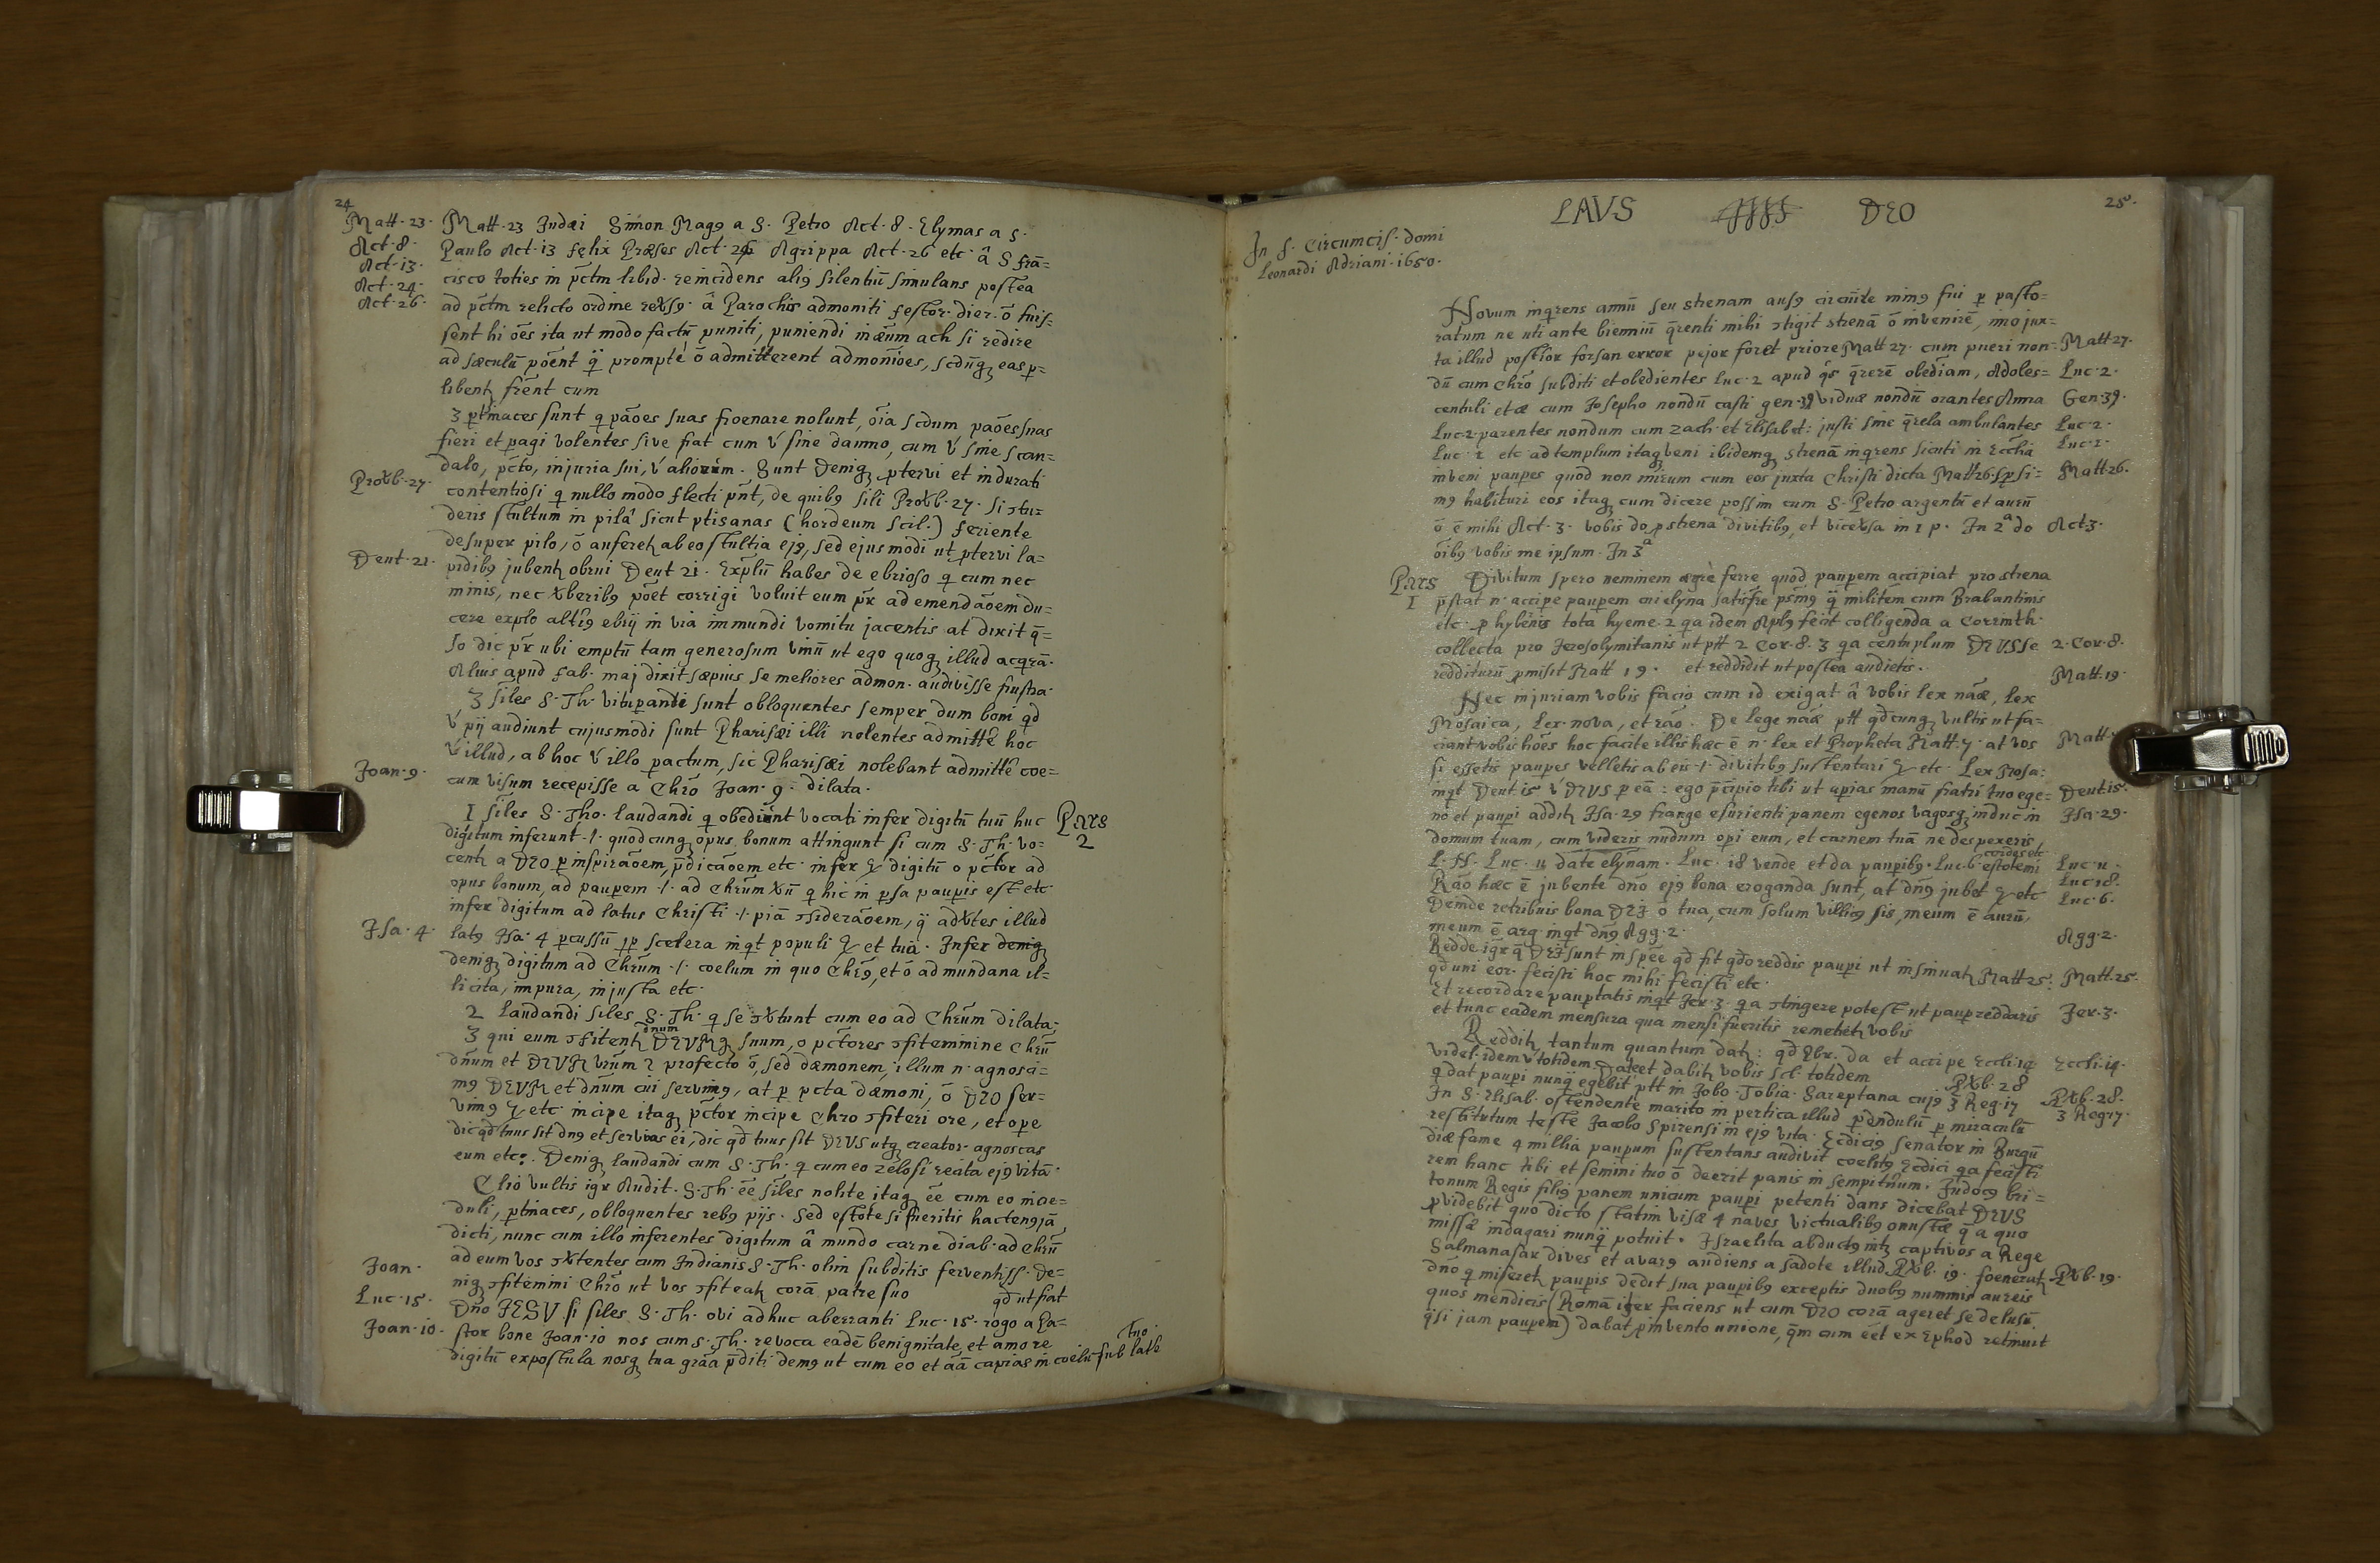 24
Matt. 23. Matt. 23 Judæi Simon Mag9 a S. Petro Act. 8. Elymas a S.
Act. 8. Paulo Act. 13 felix Præses Act. 24 Agrippa Act. 26 etc. â S frã=
Act. 13. cisco toties in pctm libid. reincidens alig silentiũ simulans postea
Act. 24. ad pctm relicto ordine â Parochis admoniti festor. dier. õ fuis=
Act. 26. sent hi oẽs ita ut modo factũ puniti, puniendi in ach si redire
ad sæculũ põent prompte õ admitterent admoniões, eas
libent frent cum
3 ptinaces sunt q paões suas froenare nolunt, oia scdum paões suas
fieri et pagi volentes sive fiat cum v sine damno, cum v sine scan=
dalo, pcto, injuria sui, v aliorum. Sunt Deniq ptervi et indurati
Provb. 27. contentiosi q nullo modo flecti pnt, de quib9 sili Provb. 27. si
deris stultum in pilâ sicut ptisanas (hordeum scil.) feriente
desuper pilo, õ aufereť ab eo stultia ej9, sed ejusmodi ut ptervi la=
Deut. 21. pidib9 jubent obrui Deut 21. Explũ habes de ebrioso q cum nec
minis, nec vberib9 põet corrigi voluit eum pr ad emendãoem du=
cere explo ebrij in via immundi vomitu jacentis at dixit q=
so dic pr ubi emptũ tam generosum vinũ ut ego quoq illud acqrã.
Aluis apud fab. maj dixit sæpius se meliores admon. audivisse frustra.
3 siles S. Th. vituperandi sunt obloquentes semper dum boni qd
v pij audiunt cujusmodi sunt Pharisæi illi nolentes admittê hoc
v illud, ab hoc v illo pactum, sic Pharisæi nolebant admittê coe=
Joan. 9. cum visum recepisse a Chrõ Joan. 9. dilata.
1 siles S. Tho. laudandi q obediunt vocati infer digitũ tuũ huc Pars
digitum inferunt ./. quodcunq opus bonum attingunt si cum S. Th. vo= 2
cent a DEO p inspirãoem, pdicãoem etc. infer digitũ o pctor ad
opus bonum, ad paupem ./. ad Chrũm q hic in psa paupis est etc.
infer digitum ad latus Christi ./. piã siderãoem, illud
Isa. 4. lat9 Isa. 4 pcussũ scelera inqt populi et tua. Infer deniq
deniq digitum ad Chrũm ./. coelum in quo Chrs, et õ ad mundana il=
licita, impura, injusta etc.
2 Laudandi siles S. Th. q se cum eo ad Chrũm dilata;
3 qui eum fitent DEUM q dnum suum, o pctores fitemmine Chrũ
dnũm et DEUM profecto õ, sed dæmonem, illum n. agnosci=
m9 DEUM et dnũm cui servim9, at p pcta dæmoni, õ DEO ser=
vim9 etc. incipe itaq pctor incipe Chro fiteri ore, et ope
dic qd tuus sit dn9 et servias ei, dic qd tuus sit DEUS utq creator. agnoscas
eum etc. Deniq laudandi cum S. Th. q cum eo zelosi reata ej9 vitã.
vultis igr Audit. S. Th. êe siles nolite itaq êe cum eo incre=
duli, ptinaces, obloquentes reb9 pijs. Sed estote si fueritis hacten9 jã
dicti, nunc cum illo inferentes digitum â mundo carne diab. ad Chrũ
Joan. ad eum vos tentes cum Indianis S. Th. olim subditis ferventiss. De=
niq fitemini Chrõ ut vos fiteat corã patre suo qd ut fiat
Luc. 15. Dnõ JESU si siles S. Th. ovi adhuc aberranti Luc. 15. rogo a Pa=
Joan. 10. stor bone Joan. 10 nos cum S. Th. revoca eadẽ benignitate et amore
digitũ expostula nosq tua grãa ut cum eo et capias in coelũ sub late tuo.
LAVS DEO 25.
In f. Circumcis. domi
Leonardi Adriani. 1650.
Novum inqrens annũ seu strenam circuite nim9 fui p pasto=
ratum ne uti ante bienniũ qrenti mihi tigit strenã õ invenirẽ, imo jux=
ta illud postior forsan error pejor foret priore Matt 27. cum pueri non= Matt 27.
dũ cum Chrõ subditi et obedientes Luc. 2 apud qrerẽ obediam, Adoles= Luc. 2.
centuli cum Josepho nondũ casti gen. 39 viduæ nondũ orantes Anna Gen. 39.
Luc. 2 parentes nondum cum Zach. et Elisabet: justi sine qrela ambulantes Luc. 2.
Luc. 1 etc ad templum itaq veni ibidemq strenã inqrens sicuti in Ecclia Luc. 1.
inveni paupes quod non mirum cum eos juxta Christi dicta Matt 26. sp si= Matt 26.
m9 habituri eos itaq cum dicere possim cum S. Petro argentũ et aurũ
õ ẽ mihi Act. 3. vobis do p strena divitib9, et vicevsa in 1 p. In 2ª do Act 3.
õib9 vobis me ipsum. In 3ª
Pars Divitum spero neminem ægre ferre quod paupem accipiat pro strena
1 pstat n. accipe paupem cui elyna satisfre militem cum Brabantinis
etc. p hybernis tota hyeme. 2 qa idem Aplus fecit colligenda a Corinth.
collecta pro Jerosolymitanis ut ptt 2 Cor. 8. 3 qa centuplum DEUS se 2. Cor. 8.
redditurũ pmisit Matt 19. et reddidit ut postea audietis. Matt. 19.
Nec injuriam vobis facio cum id exigat â vobis lex nãæ, lex
Mosaica, Lex nova, et rão. De lege nãæ ptt qdcunq vultis ut fa=
ciant vobis hões hoc facite illis hæc ẽ n. lex et Propheta Matt. 7. at vos Matt.
si essetis paupes velletis ab eis ./. divitib9 sustentari etc. Lex Mosa:
inqt Deut 15 DEUS p eã: ego pcipio tibi ut apias manũ fratri tuo ege= Deut 15.
no et paupi addit Isa. 29 frange esurienti panem egenos vagosq induc in Isa. 29.
domum tuam, cum videris nudum opi eum, et carnem tuã ne despexeris
L. N. Luc. 11 date elynam. Luc. 18 vende et da paupib9. Luc. 6 estote mi cordes etc. Luc. 11.
Rão hæc ẽ jubente dnõ ej9 bona eroganda sunt, at dn9 jubet etc Luc 18.
Deinde retribuis bona DEI õ tua, cum solum villic9 sis, meum ẽ aurũ, Luc. 6.
meum ẽ arg. inqt dn9 Agg. 2. Agg. 2.
Redde igr q DEI sunt in spẽe qd fit qdo reddis paupi ut insinuat Matt 25: Matt. 25.
qd uni eor. fecisti hoc mihi fecisti etc.
Et recordare pauptatis inqt Jer. 3. qa tingere potest ut paup reddaris Jer. 3.
et tunc eadem mensura qua mensi fueritis remetiet vobis
Reddit tantum quantum dat: qd Da et accipe Eccli. 14 Eccli. 14.
videl. idem v totidem Date et dabit vobis scl. totidem
q dat paupi nunq egebit ptt in Jobo. Tobia. Sareptana cuj9 3 Reg. 17 Pvb. 28 Pvb. 28.
In S. Elisab. ostendente marito in pertica illud pendulũ p miraculũ 3 Reg 17.
restitutum teste Jacobo Spirensi in ej9 vita. Ecdici9 senator in Burgũ
diæ fame 4 millia paupum sustentans audivit coelit9 Ecdici qa fecisti
rem hanc tibi et semini tuo õ deerit panis in sempitnum. Judoc9 bri=
tonum Regis fili9 panem unicum paupi petenti dans dicebat DEUS
pvidebit quo dicto statim visæ 4 naves victualib9 onustæ a quo
missæ indagari nunq potuit. Israelita abduct9 int captivos a Rege
Salmanasar dives et avar9 audiens a sãdote illud Pvb. 19. foenerat Pvb. 19.
dno q miseret paupis dedit sua paupib9 exceptis duob9 nummis aureis
quos mendicis (Romã iter faciens ut cum DEO corã ageret se delusũ,
qsi jam paupem) dabat, invento unione, qm cum eet ex Ephod retinuit